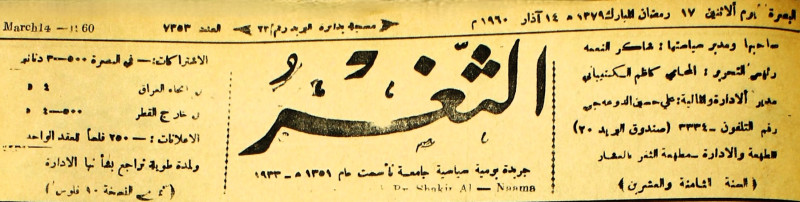 البصرة يوم ألاثنين ١٧ رمضان المبارك ١٣٧٩ ه ١٤ آذار ١٩٦٠ م
مسجلة بدائرة البريد رقم ٢٣
العدد ٧٣٥٣
March 14 — 60
صاحبها ومدير سياستها : شاكر النعمه
رئيس التحرير : المحامي كاظم
مدير ألادارة والمالية : علي حسين
رقم التلفون - ٣٣٣٤ ( صندوق البريد ٢٠ )
المطبعة والادارة - مطبعة الثغر بالعشار
( السنة الثامنة والعشرين )
الثغر
جريدة يومية سياسية جامعة تأسست عام ١٣٥١ ه - ١٩٣٣
By Shakir Al — Naama
الاشتراكات : — في البصرة ٥٠٠-٣ دنانير
في انحاء العراق ٤ د
في خارج القطر ٥٠٠-٤ د
الاعلانات : — ٢٥٠ فلساً للعقد الواحد
ولمدة طويلة تراجع بشأنها الادارة
( ثمن النسخة ١٠ فلوس )